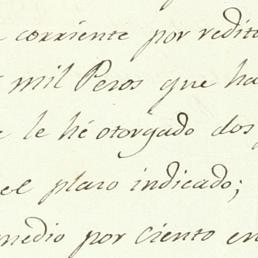 corriente por redit
mil Pesos que ha
le hé otorgado dos
el plazo indicado;
medio por ciento en